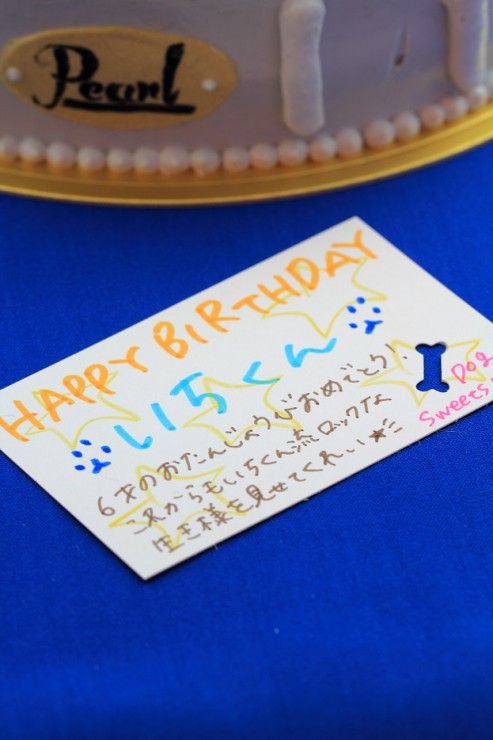 Pearl
HAPPY BIRTHDAY
いちくん
6才のおたんじょうびおめでとう!
これからもいちくん流ロックな
生き様を見せてくれい★
Dog
Sweets